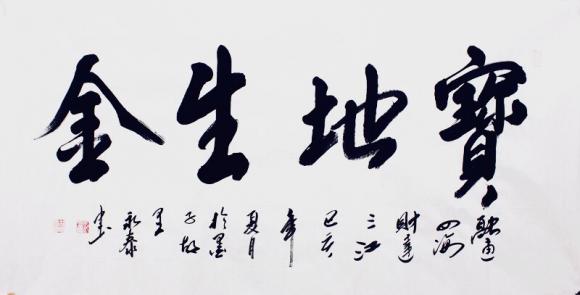 寶地生金
融通
四海
財達
三江
己亥
年
夏月
於墨
子故
里
永泰
書